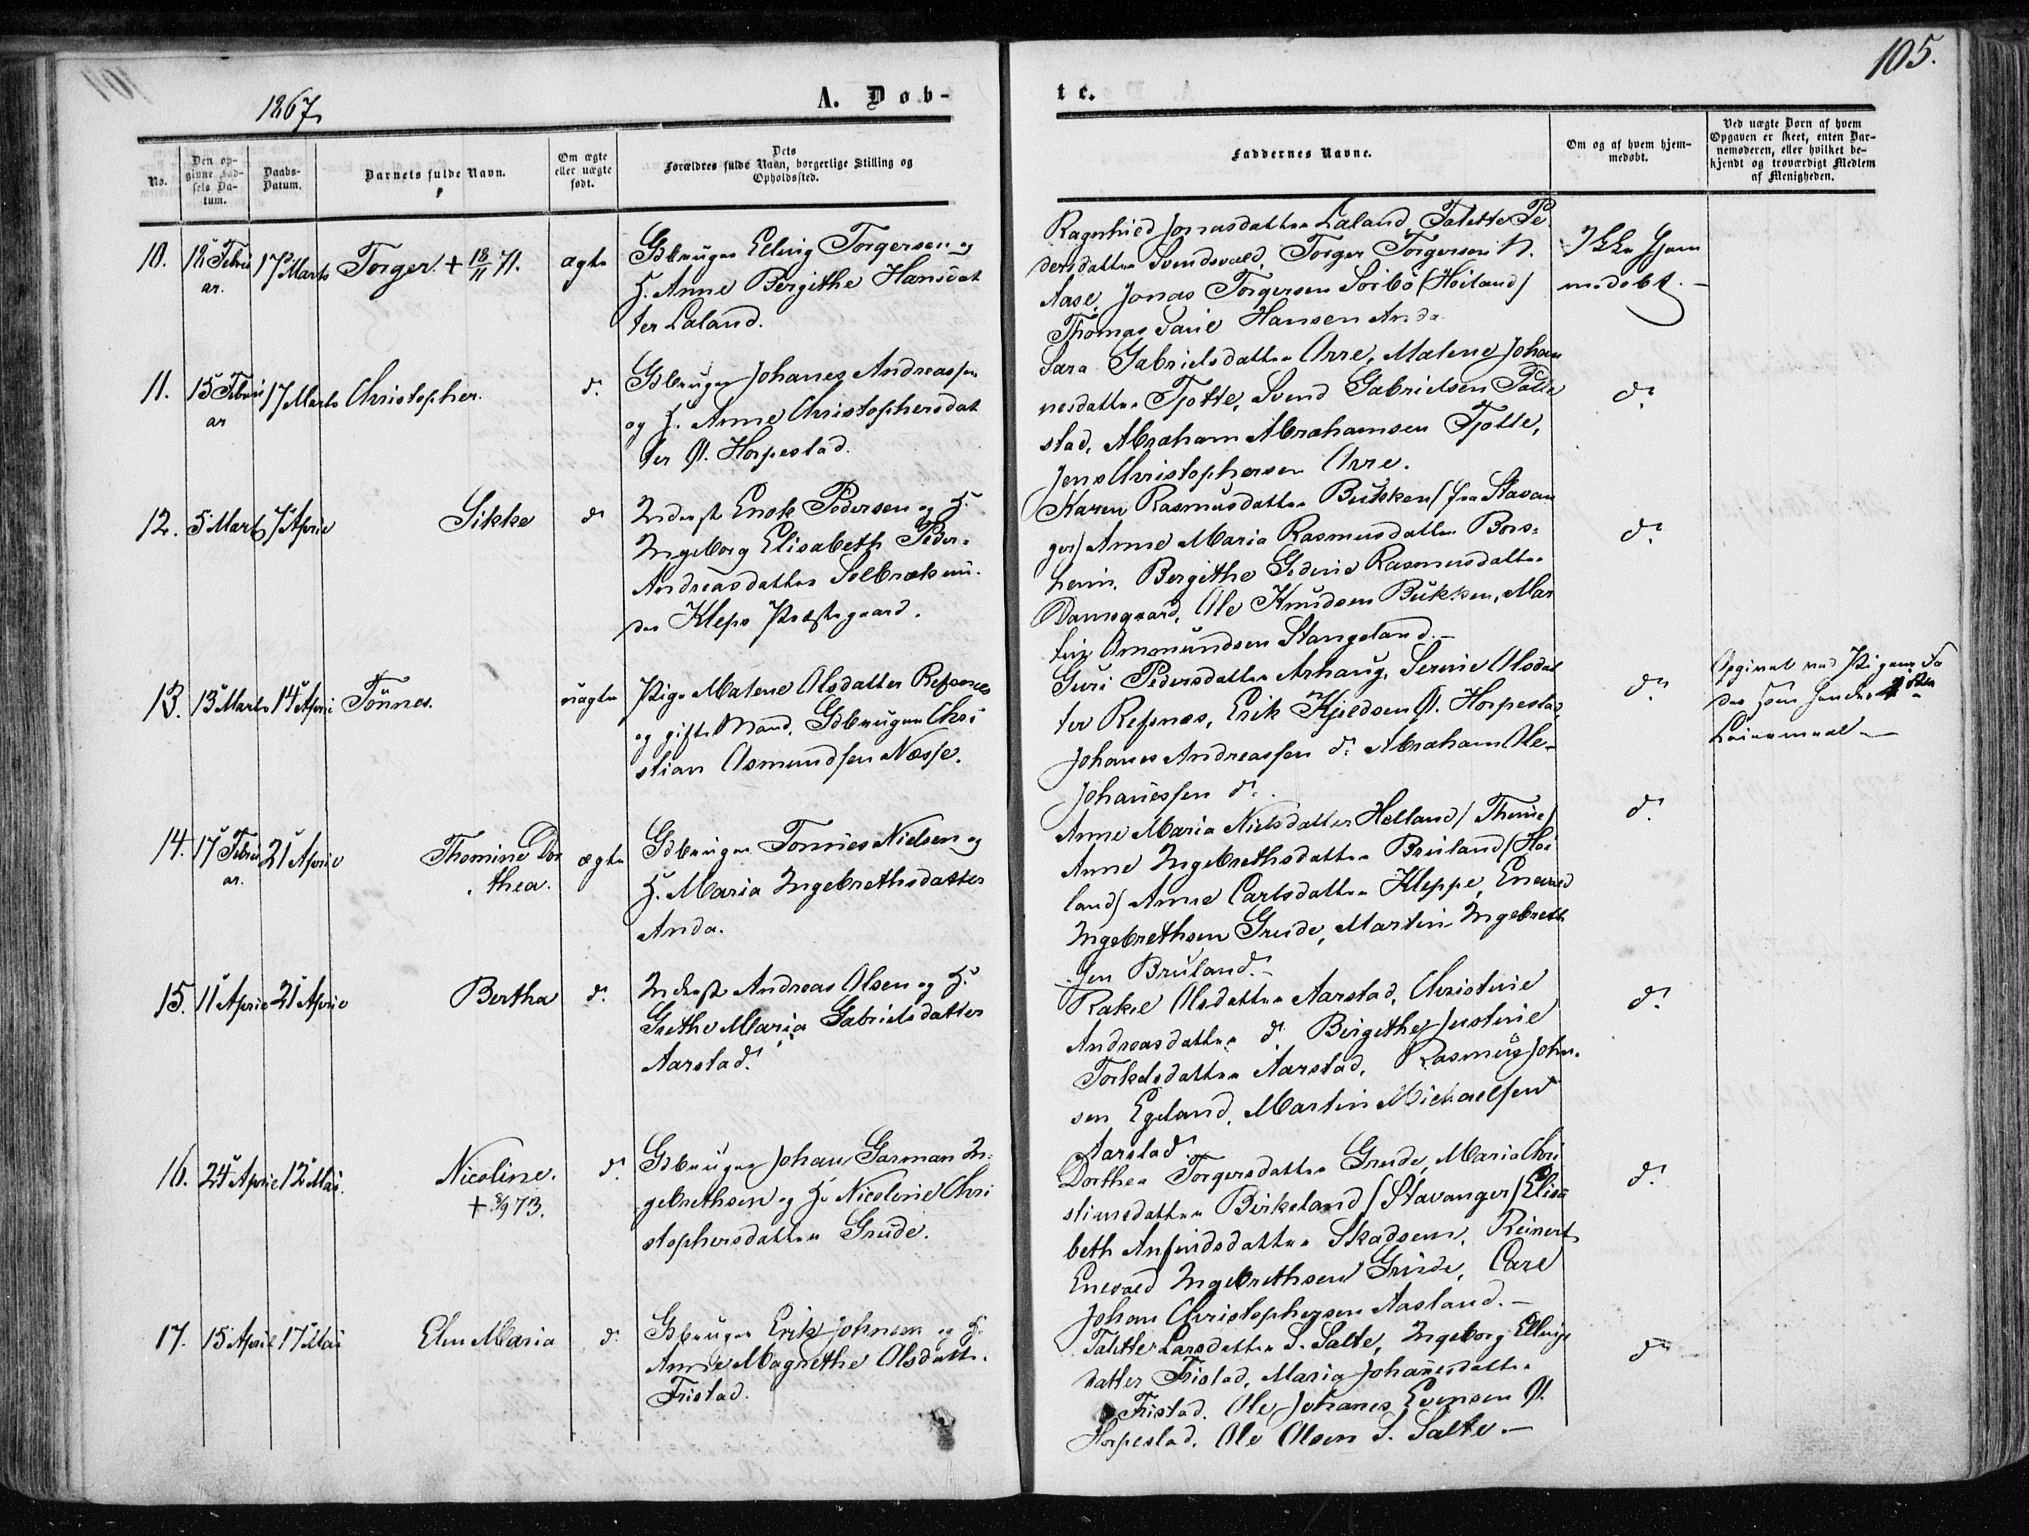 105.
1867,
A. Døb-
te.
No.
Den op-
givne Fød-
sels Da-
tum.
Daabs-
Datum.
Barnets fulde Navn.
Om ægte
eller uægte
født.
Dets
Forældres fulde Navn, borgerlige Stilling og
Opholdssted.
Faddernes Navne.
Om og af hvem hjem-
medøbt.
Ved uægte Børn af hvem
Opgaven er skeet, enten Bar-
nemoderen, eller hvilket be-
kjendt og troværdigt Medlem
af Menigheden.
10.
12 Febru
ar.
17 Marts
Torger. + 18/11 71.
ægte
Gdbruger Elling Torgersen og
H. Anne Bergithe Hansdat
ter Laland.
Ragnhild Jonasdatter Laland, Talette Pe
dersdatter Svendsvold, Torger Torgersen N.
Aase, Jonas Torgersen Sørbø (Høiland)
Thomas Hansen Anda
Ikke Hjem
medøbt. –
11.
15 Febru
ar
17 Marts
Christopher.
do.
Gdbruger Johanes Andreassen
og H. Anne Christophersdat
ter N. Horpestad.
Sara Gabrielsdatter Orre, Malene Johan
nesdatter Tjøtte, Svend Gabrielsen
stad, Abraham Abrahamsen Tjøtte,
Jens Christophersen Orre.
do.
12.
5 Marts
7 April
Sikke
do
Inderst Enok Pedersen og H.
Ingeborg Elisabeth Peder-
Andreasdatter Solbræk
Klepp Præstegaard.
Karen Rasmusdatter Bukken (fra Stavan
ger) Anne Maria Rasmusdatter Bors-
heim. Bergithe Rasmusdatter
Dannsgaard, Ole Knudsen Bukken, Mar
tin Ommundsen Stangeland. –
do.
13.
13 Marts
14 April
Tønnes.
uægte
Pige Malene Olsdatter Refsnes
og gift Mand, Gdbruger Chri
stian Osmundsen Næsse.
Guri Pedersdatter Arhaug, Serine Olsdat
ter Refsnes, Erik Kjeldsen N. Horpestad,
Johanes Andreassen do. Abraham Ole
Johanessen do.
do.
Opgivet ved Pigens Fa
der som hendes
Leiermaal –
14.
17 Febru
ar.
21 April
Thomine Dor
thea.
ægte
Gdbruger Tønnes Nielsen og
H. Maria Ingebrethsdatter
Anda.
Anne Maria Nielsdatter Helland (Thime)
Anne Ingebrethsdatter Bruland (Høi
land) Anne Carlsdatter Kleppe, Enevald
Ingebrethsen Grude, Martin Ingebreth
sen Bruland. –
do.
15.
11 April
21 April
Bertha
do.
Inderst Andreas Olsen og H.
Grethe Maria Gabrielsdatter
Aarstad.
Rakel Olsdatter Aarstad, Christine
Andreasdatter do. Birgithe Justine
Torkelsdatter Aarstad, Rasmus John-
sen Egeland, Martin Michaelsen
Aarstad.
do.
16.
24 April
12 Mai.
Nicoline.
+ 8/9 73.
do.
Gdbruger Johan Garman In-
gebrethsen og H. Nicoline Chri
stophersdatter Grude.
Dorthea Torgersdatter Grude, Maria Chri
stiansdatter Birkeland (Stavanger) Elisa
beth Anfindsdatter Skadsem, Reinert
Enevald Ingebrethsen Grude, Carl
Johan Christophersen Aasland. –
do.
17.
15 April
17 Mai
Elen Maria
do.
Gdbruger Erik Johnsen og H.
Anne Magrethe Olsdatt.
Fristad.
Talette Larsdatter S. Salte, Ingeborg Ellings
datter Fristad, Maria Johanesdatter
Fristad. Ole Johanes Evensen N.
Horpestad, Ole Olsen S. Salte. –
do